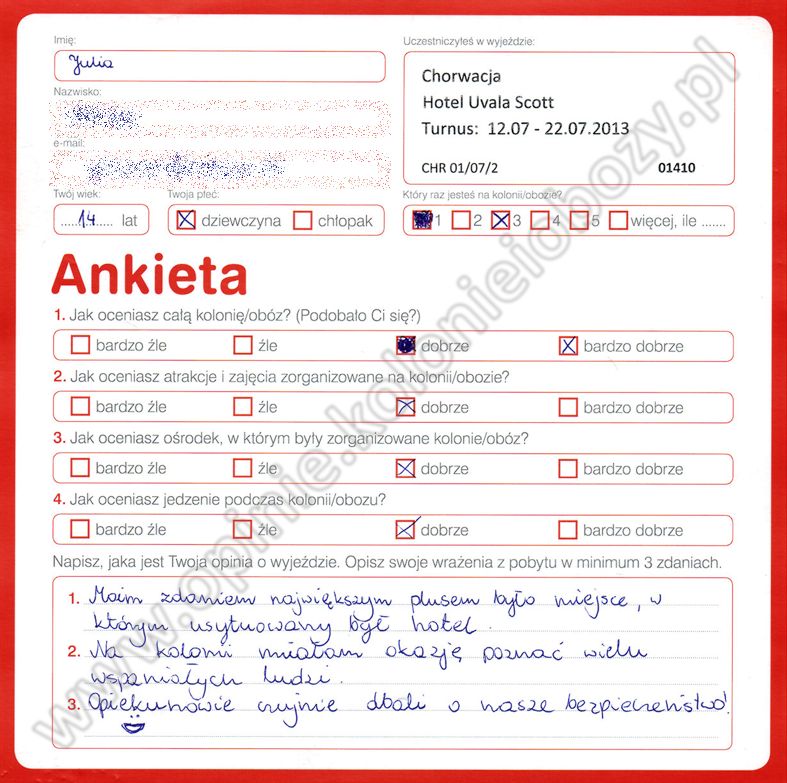 Imię:
Julia
Uczestniczyłeś w wyjeździe:
Chorwacja
Hotel Uvala Scott
Turnus: 12.07 - 22.07.2013
CHR 01/07/2 01410
Nazwisko:
e-mail:
Twój wiek:
.....14..... lat
Twoja płeć:
dziewczyna chłopak
Który raz jesteś na kolonii/obozie?
1 2 3 4 5 więcej, ile .......
Ankieta
1. Jak oceniasz całą kolonię/obóz? (Podobało Ci się?)
bardzo źle źle dobrze bardzo dobrze
2. Jak oceniasz atrakcje i zajęcia zorganizowane na kolonii/obozie?
bardzo źle źle dobrze bardzo dobrze
3. Jak oceniasz ośrodek, w którym były zorganizowane kolonie/obóz?
bardzo źle źle dobrze bardzo dobrze
4. Jak oceniasz jedzenie podczas kolonii/obozu?
bardzo źle źle dobrze bardzo dobrze
Napisz, jaka jest Twoja opinia o wyjeździe. Opisz swoje wrażenia z pobytu w minimum 3 zdaniach.
1. Moim zdaniem największym plusem było miejsce, w
którym usytuowany był hotel.
2. Na kolonii miałam okazję poznać wielu
wspaniałych ludzi.
3. Opiekunowie czujnie dbali o nasze bezpieczeństwo!
www.opinie.kolonieiobozy.pl